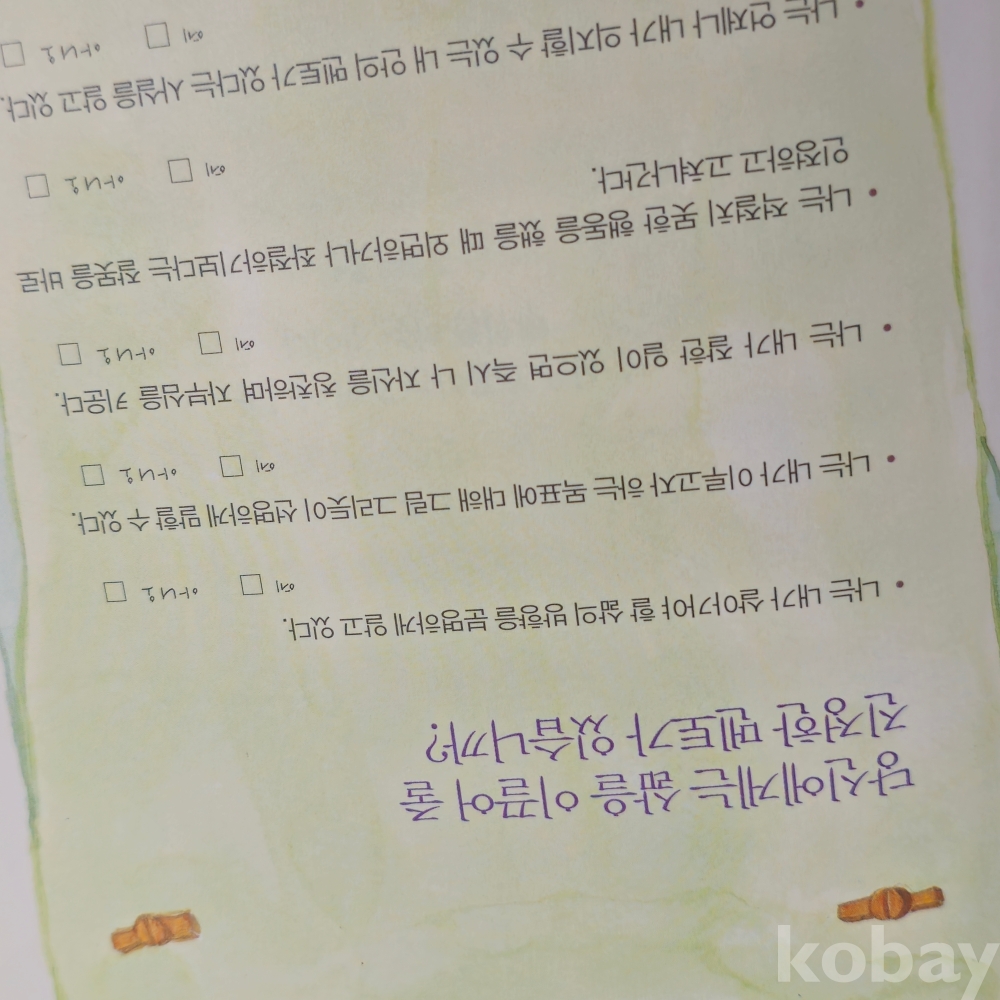 당신에게는 삶을 이끌어 줄
진정한 멘토가 있습니까?
• 나는 내가 살아가야 할 삶의 방향을 분명하게 알고 있다.
예 □ 아니오 □
• 나는 내가 이루고자 하는 목표에 대해 그림 그리듯이 선명하게 말할 수 있다.
예 □ 아니오 □
• 나는 내가 잘한 일이 있으면 즉시 나 자신을 칭찬하며 자부심을 키운다.
예 □ 아니오 □
• 나는 적절치 못한 행동을 했을 때 외면하거나 좌절하기보다는 잘못을 바로
인정하고 고쳐나간다.
예 □ 아니오 □
• 나는 언제나 내가 의지할 수 있는 내 안의 멘토가 있다는 사실을 알고 있다.
예 □ 아니오 □
kobay